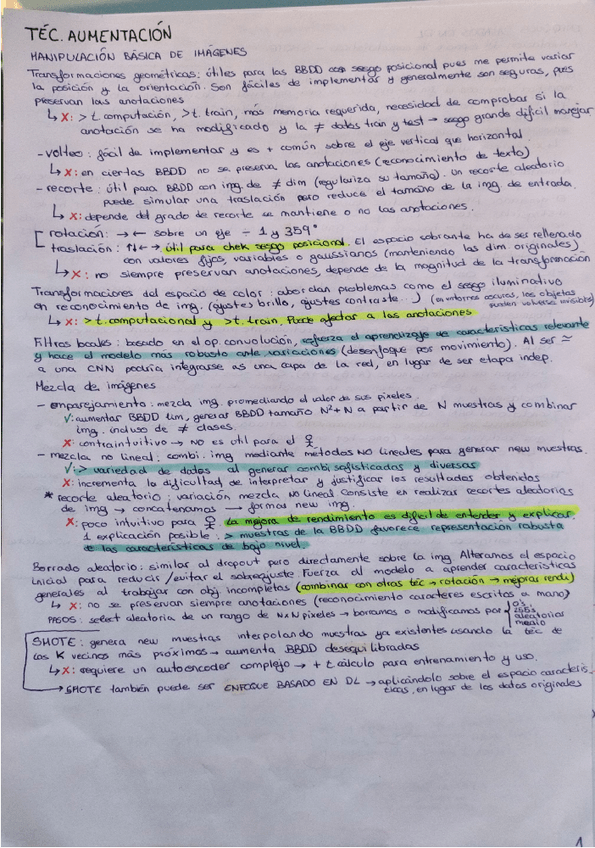 TÉC. AUMENTACIÓN
MANIPULACIÓN BÁSICA DE IMÁGENES
Transformaciones geométricas: útiles para las BBDD con sesgo posicional pues me permite variar
la posición y la orientación. Son fáciles de implementar y generalmente son seguras, pues
preservan las anotaciones
↳ X: > t. computación, > t. train, más memoria requerida, necesidad de comprobar si la
anotación se ha modificado y la ≠ datos train y test → sesgo grande difícil manejar
- volteo: fácil de implementar y es + común sobre el eje vertical que horizontal
↳ X: en ciertas BBDD no se preserva las anotaciones (reconocimiento de texto)
- recorte: útil para BBDD con img. de ≠ dim (regulariza su tamaño). Un recorte aleatorio
puede simular una traslación pero reduce el tamaño de la img. de entrada.
↳ X: depende del grado de recorte se mantiene o no las anotaciones.
rotación: → ← sobre un eje - 1 y 359°
traslación: ↑↓ ← → útil para chek sesgo posicional. El espacio sobrante ha de ser rellenado
con valores fijos, variables o gaussianos (manteniendo las dim. originales)
↳ X: no siempre preservan anotaciones, depende de la magnitud de la transformación
Transformaciones del espacio de color: abordan problemas como el sesgo iluminativo
en reconocimiento de img. (ajustes brillo, ajustes contraste...) (en entornos oscuros, los objetos
pueden volverse invisibles)
↳ X: > t. computacional y > t. train. Puede afectar a las anotaciones
Filtros locales: basado en el op. convolución, refuerza el aprendizaje de características relevante
y hace el modelo más robusto ante variaciones (desenfoque por movimiento). Al ser ≃
a una CNN podría integrarse as una capa de la red, en lugar de ser etapa indep.
Mezcla de imágenes
- emparejamiento: mezcla img. promediando el valor de sus píxeles.
√: aumentar BBDD lim, generar BBDD tamaño N²+N a partir de N muestras y combinar
img. incluso de ≠ clases.
X: contraintuitivo → no es útil para el ♀
- mezcla no lineal: combi. img mediante métodos NO lineales para generar new muestras.
√: > variedad de datos al generar combi sofisticadas y diversas
X: incrementa la dificultad de interpretar y justificar los resultados obtenidos
* recorte aleatorio: variación mezcla NO lineal consiste en realizar recortes aleatorios
de img → concatenamos → formas new img.
X: poco intuitivo para ♀ la mejora de rendimiento es difícil de entender y explicar.
1 explicación posible: > muestras de la BBDD favorece representación robusta
de las características de bajo nivel.
Borrado aleatorio: similar al dropout pero directamente sobre la img. Alteramos el espacio
inicial para reducir/evitar el sobreajuste. Fuerza al modelo a aprender características
generales al trabajar con obj. incompletas (combinar con otras téc → rotación → mejoras rendi)
↳ X: no se preservan siempre anotaciones (reconocimiento caracteres escritos a mano)
PASOS: select aleatoria de un rango de N×N píxeles → borramos o modificamos por
0s
255s
aleatorios
medio
SMOTE: genera new muestras interpolando muestras ya existentes usando la téc de
los K vecinos más próximos → aumenta BBDD desequilibradas
↳ X: requiere un autoencoder complejo → + t cálculo para entrenamiento y uso.
→ SMOTE también puede ser ENFOQUE BASADO EN DL → aplicándolo sobre el espacio caracterís-
ticas, en lugar de los datos originales
1